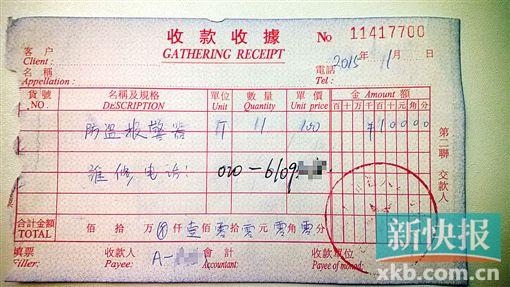 收款收據 No 11417700
GATHERING RECEIPT
客户
Client:
名稱
Appellation:
電話 2015年11月 日
Tel:
貨號 名稱及規格 單位 數量 單價 金 Amount 額
NO. DeSCRIPTION Unit Quantity Unit price 百十万千百十元角分
防盗报警器 个 11 100 ¥10000
维修电话: 020-6109
第二聯 交款人
合計金額 佰 拾 万 仟壹佰零拾零元零角零分
TOTAL
填票 收款人 會計 收款單位
Filler: Payee: A- Accountant: Payee of monad:
新快报
xkb.com.cn